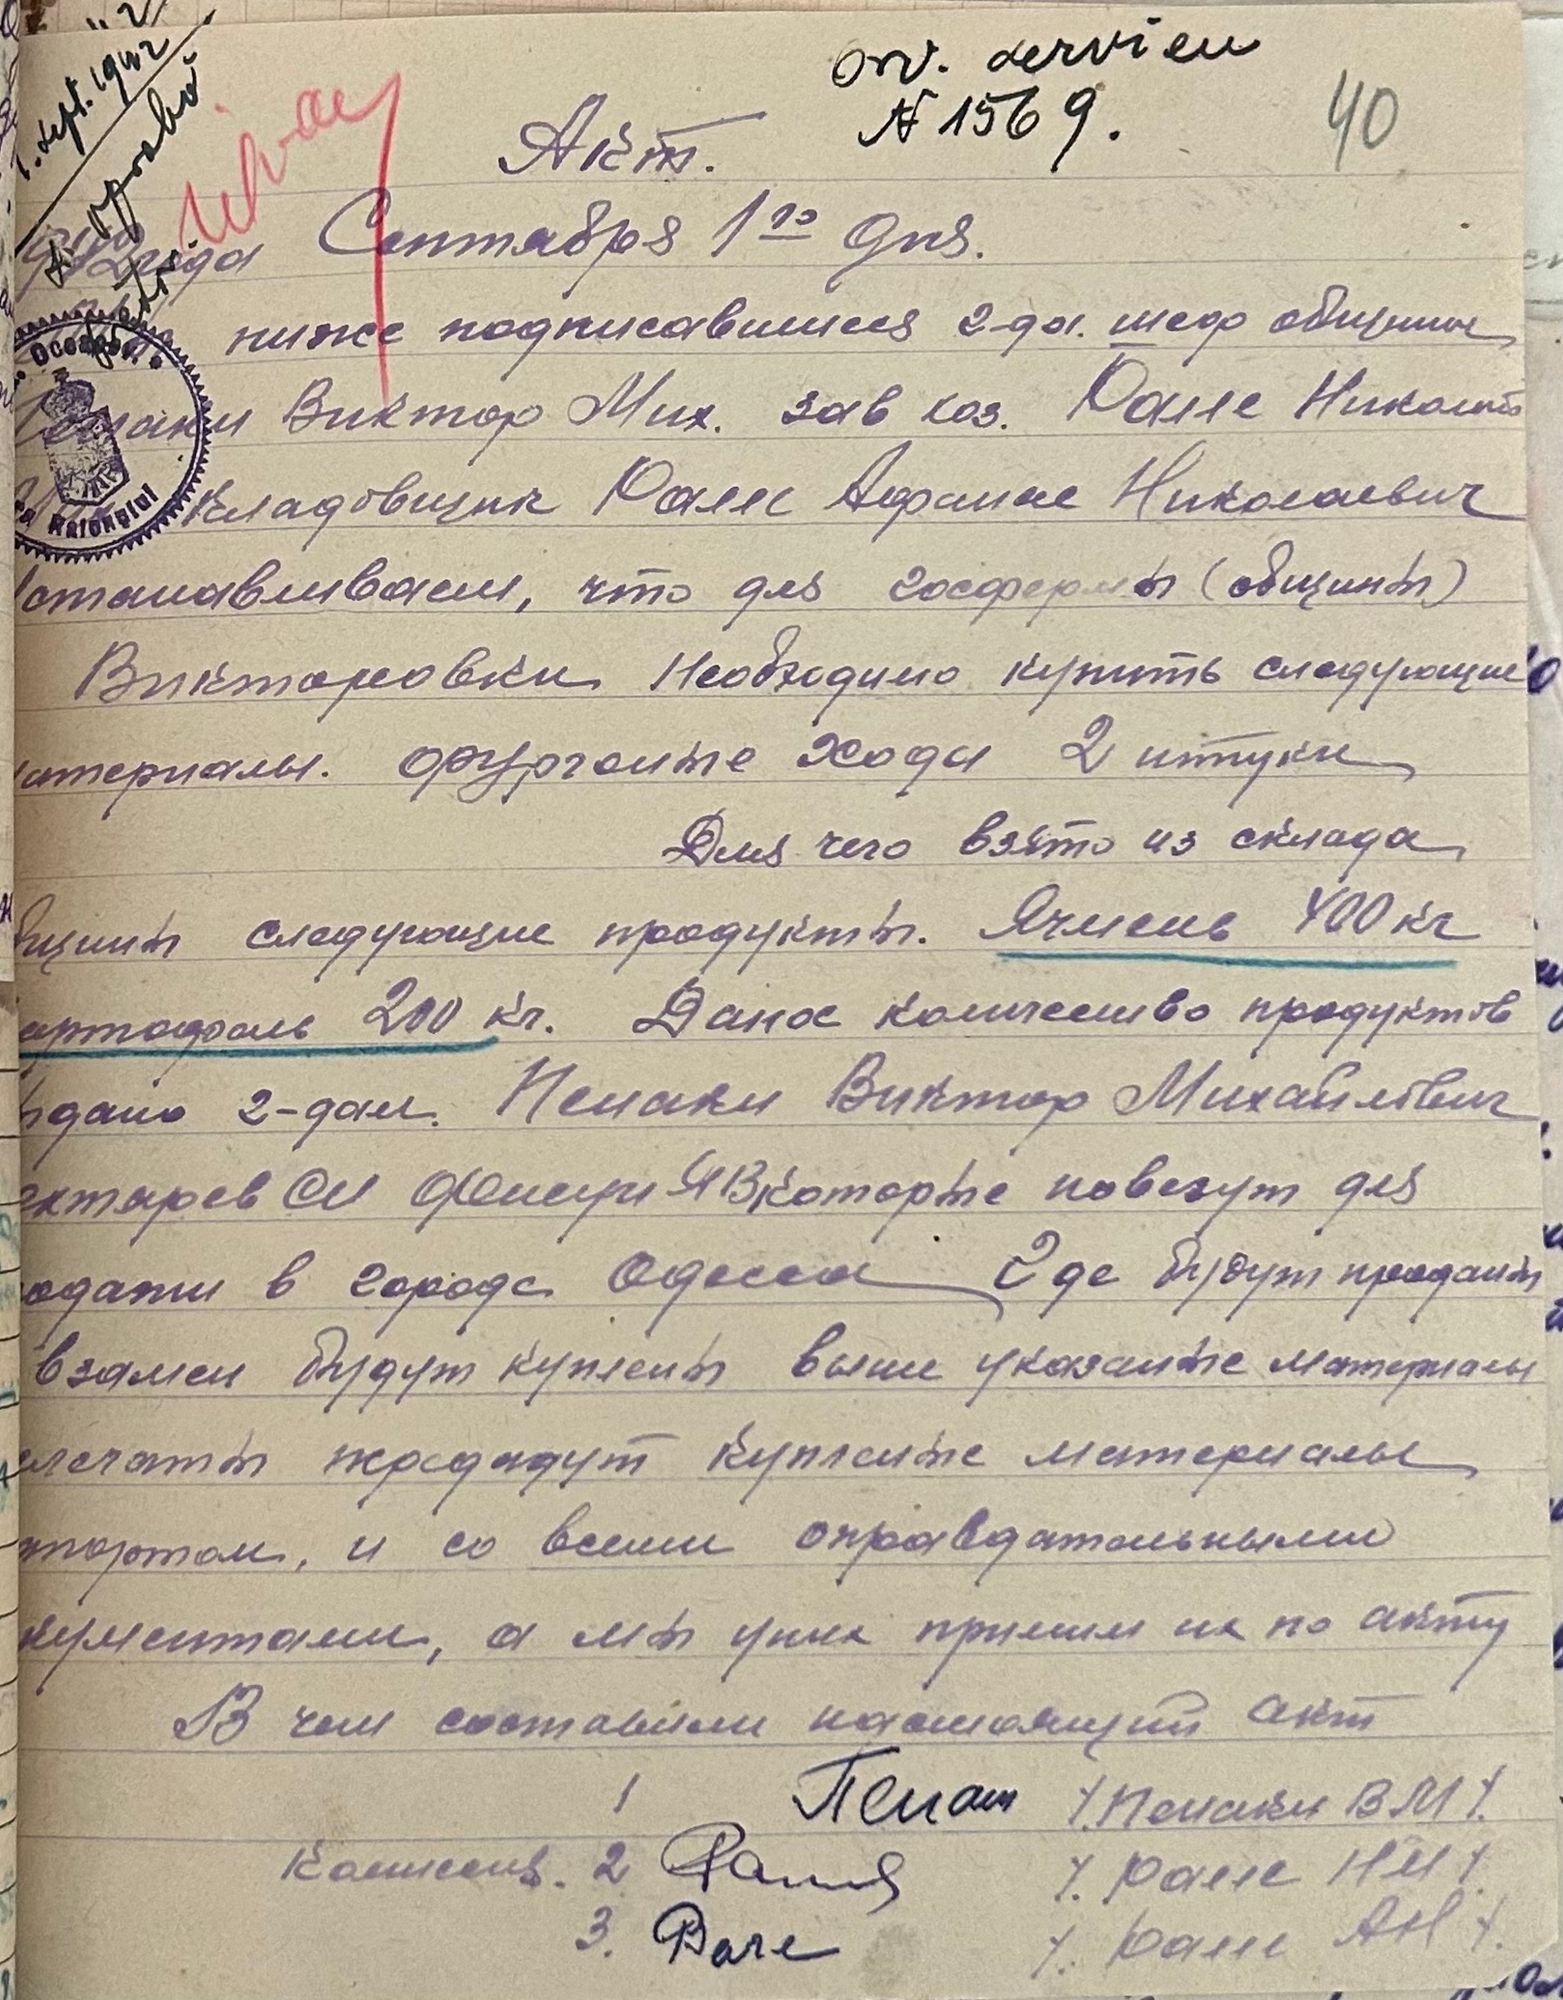 1. Sept. 1942
Se aprobă
Ord. serviciu
№ 1569.
40
Акт.
Сентября 1го дня.
ниже подписавшиеся 2-да. шеф общины
Виктор Мих. зав хоз. Рале
Кладовщик Рале Афанас Николаевич
станавливаем, что для госфермы (общины)
Викторовки необходимо купить следующие
атериалы. фургоные Хода 2 штуки
Для чего взято из склада
бщины следующие продукты. Ячмень 400 кг
артофель 200 кг. Даное количество продуктов
ыдано 2-дам. Пенаки Виктор Михайлович
которые повезут для
одажи в городе Одесса Где будут проданы
взамен будут куплены выше указаные материалы
передадут купленые материалы
портом, и со всеми оправдательными
кументами, а мы у них примем их по акту
В чем составили настоящий акт
1 Пенаки /. Пенаки ВМ /.
Комиссия. 2 /. Рале НН /.
3. Рале /. Рале АН /.
Raionului